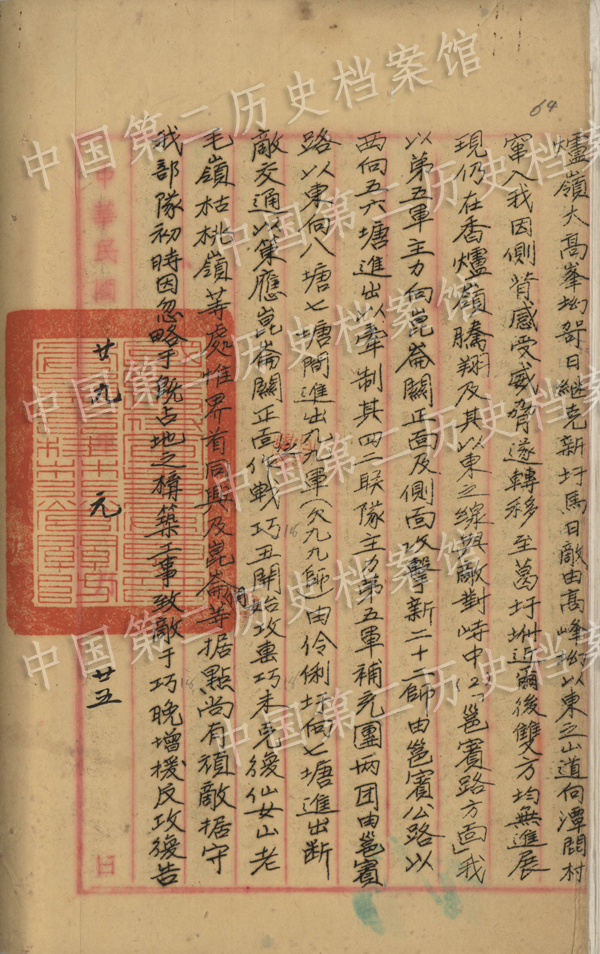 64
爐嶺大高峯坳哿日繼克新圩馬日敵由高峰坳以東之山道向潭閻村
竄入我因側背感受威脅遂轉移至葛圩附近爾後雙方均無進展
現仍在香爐嶺騰翔及其以東之線與敵對峙中(2)「邕賓路方面」我
以第五軍主力向崑崙關正面及側面攻擊新二十二師由邕賓公路以
西向五六塘進出以牽制其四二聯隊主力第五軍補充團兩团由邕賓
路以東向八塘七塘間進出九九軍(欠九九師)由伶俐圩向七塘進出斷
敵交通以策應崑崙關正面作戰巧丑開始攻擊巧未克復仙女山老
毛嶺枯桃嶺等處惟界首同興及崑崙等据點尚有頑敵据守
我部隊初時因忽略于既占地之構築工事致敵于巧晚增援反攻復告
中華民國廿九年元月廿五日
中国第二历史档案馆
中国第二历史档案馆
中国第二历史档案馆
中国第二历史档案馆
中国第二历史档案馆
中国第二历史档案馆